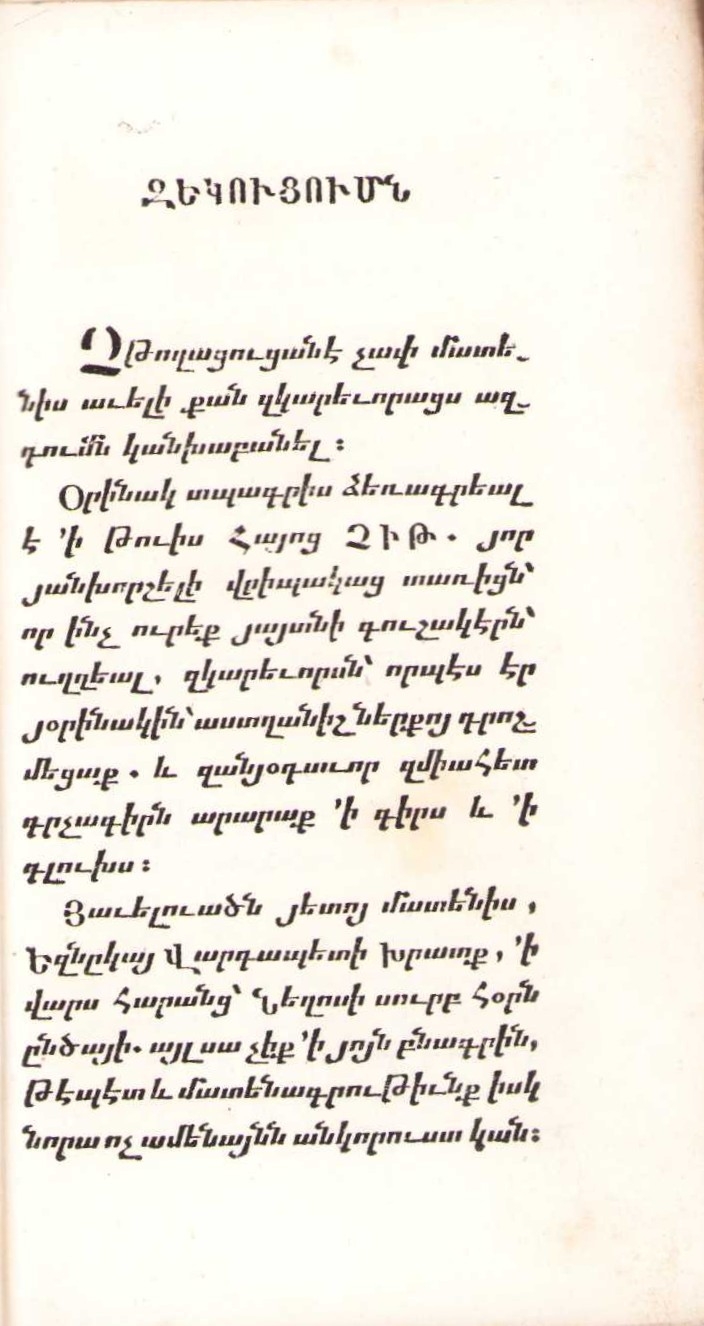 ԶԵԿՈՒՑՈՒՄՆ
Չթողացուցանէ չափ մատե֊
նիս աւելի քան զկարեւորացս ազ֊
դումն կանխաբանել։
Օրինակ տպագրիս ձեռագրեալ
է ՚ի թուիս Հայոց ՉԻԹ. յոր
յանխորշելի վրիպակաց տառիցն՝
որ ինչ ուրեք յայտնի գուշակէրն՝
ուղղեալ, զկարեւորսն՝ որպէս էր
յօրինակին՝ աստղանիշ ներքոյ դրոշ֊
մեցաք. և զանյօդաւոր զմիահետ
գրչագիրն արարաք ՚ի գիրս և ՚ի
գլուխս։
Յաւելուածն յետոյ մատենիս,
Եզնըկայ Վարդապետի խրատք, ՚ի
վարս Հարանց՝ Նեղոսի սուրբ Հօրն
ընծայի. այլ սա չիք ՚ի յոյն բնագրին,
թէպէտ և մատենագրութիւնք իսկ
նորա ոչ ամենայնն անկորուստ կան։